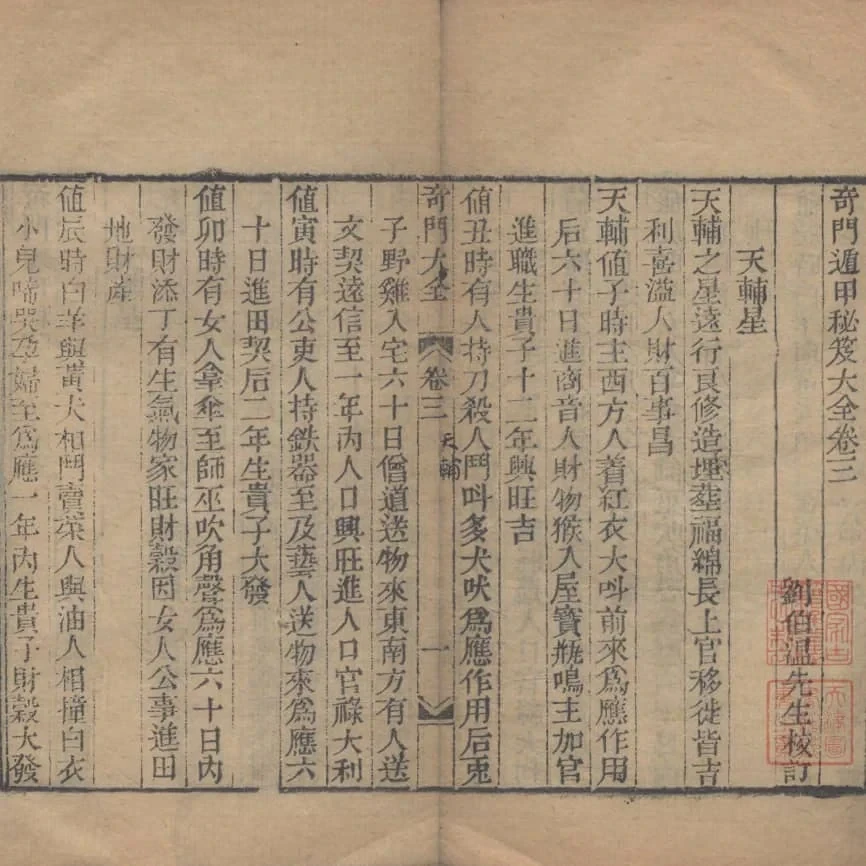 奇門遁甲秘笈大全卷三
劉伯溫先生校訂
天輔星
天輔之星遠行良修造埋塟福綿長上官移徙皆吉
利喜溢人財百事昌
天輔值子時主西方人着紅衣大呌前來爲應作用
后六十日進商音人財物猴入屋寶瓶鳴主加官
進職生貴子十二年興旺吉
值丑時有人持刀殺人鬥呌多犬吠爲應作用后兎
奇門大全 卷三 天輔 一
子野雞入宅六十日僧道送物來東南方有人送
文契遠信至一年內人口興旺進人口官祿大利
值寅時有公吏人持鉄器至及藝人送物來爲應六
十日進田契后二年生貴子大發
值卯時有女人拿傘至師巫吹角聲爲應六十日內
發財添丁有生氣物家旺財穀因女人公事進田
地財產
值辰時白羊與黃犬相鬥賣菜人與油人相撞白衣
小兒啼哭孕婦至爲應一年內生貴子財穀大發